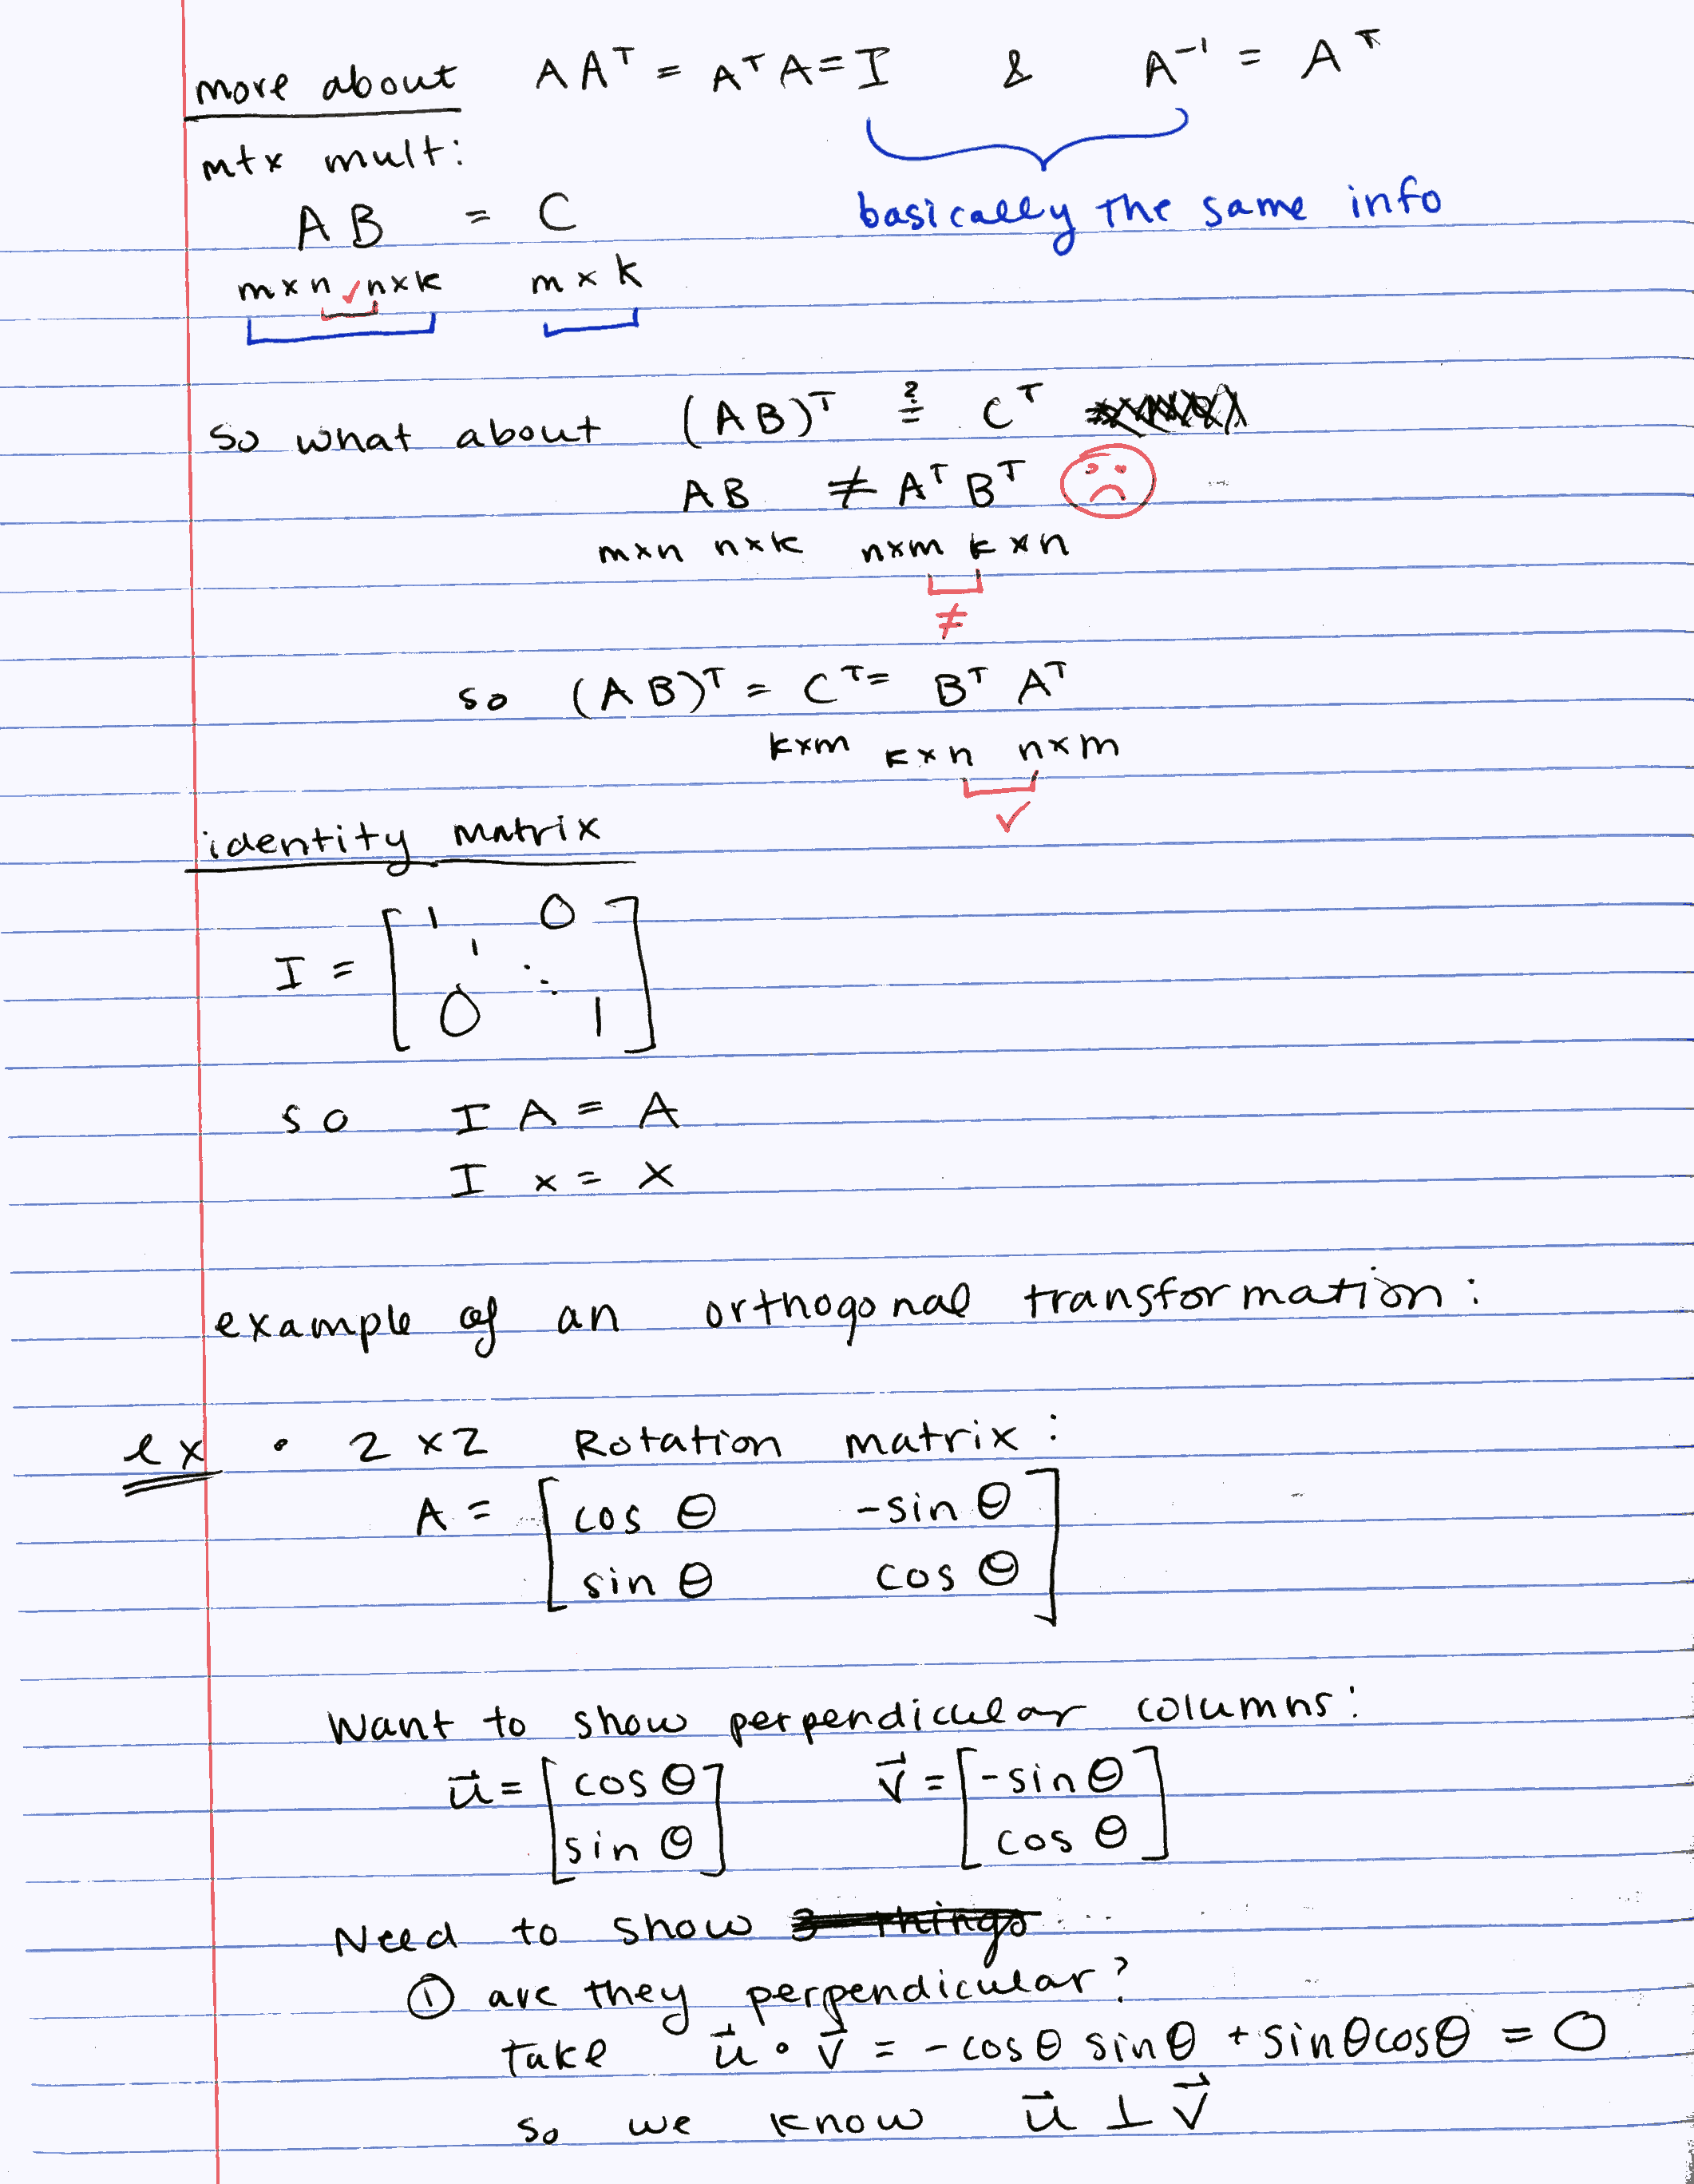 more about AAᵀ = AᵀA = I & A⁻¹ = Aᵀ
mtx mult:
AB = C
basically the same info
m×n ✓ n×k m×k
so what about (AB)ᵀ ≟ Cᵀ
AB ≠ AᵀBᵀ
m×n n×k n×m k×n
≠
so (AB)ᵀ = Cᵀ = Bᵀ Aᵀ
k×m k×n n×m
✓
identity matrix
1 0
1
I = [ ⋱ ]
0 1
so I A = A
I x = x
example of an orthogonal transformation:
ex • 2 × 2 Rotation matrix:
A = [ cos θ -sin θ
sin θ cos θ ]
Want to show perpendicular columns:
u⃗ = [ cos θ v⃗ = [ -sin θ
sin θ ] cos θ ]
Need to show 3 things
① are they perpendicular?
take u⃗ • v⃗ = - cos θ sin θ + sin θ cos θ = 0
so we know u⃗ ⊥ v⃗